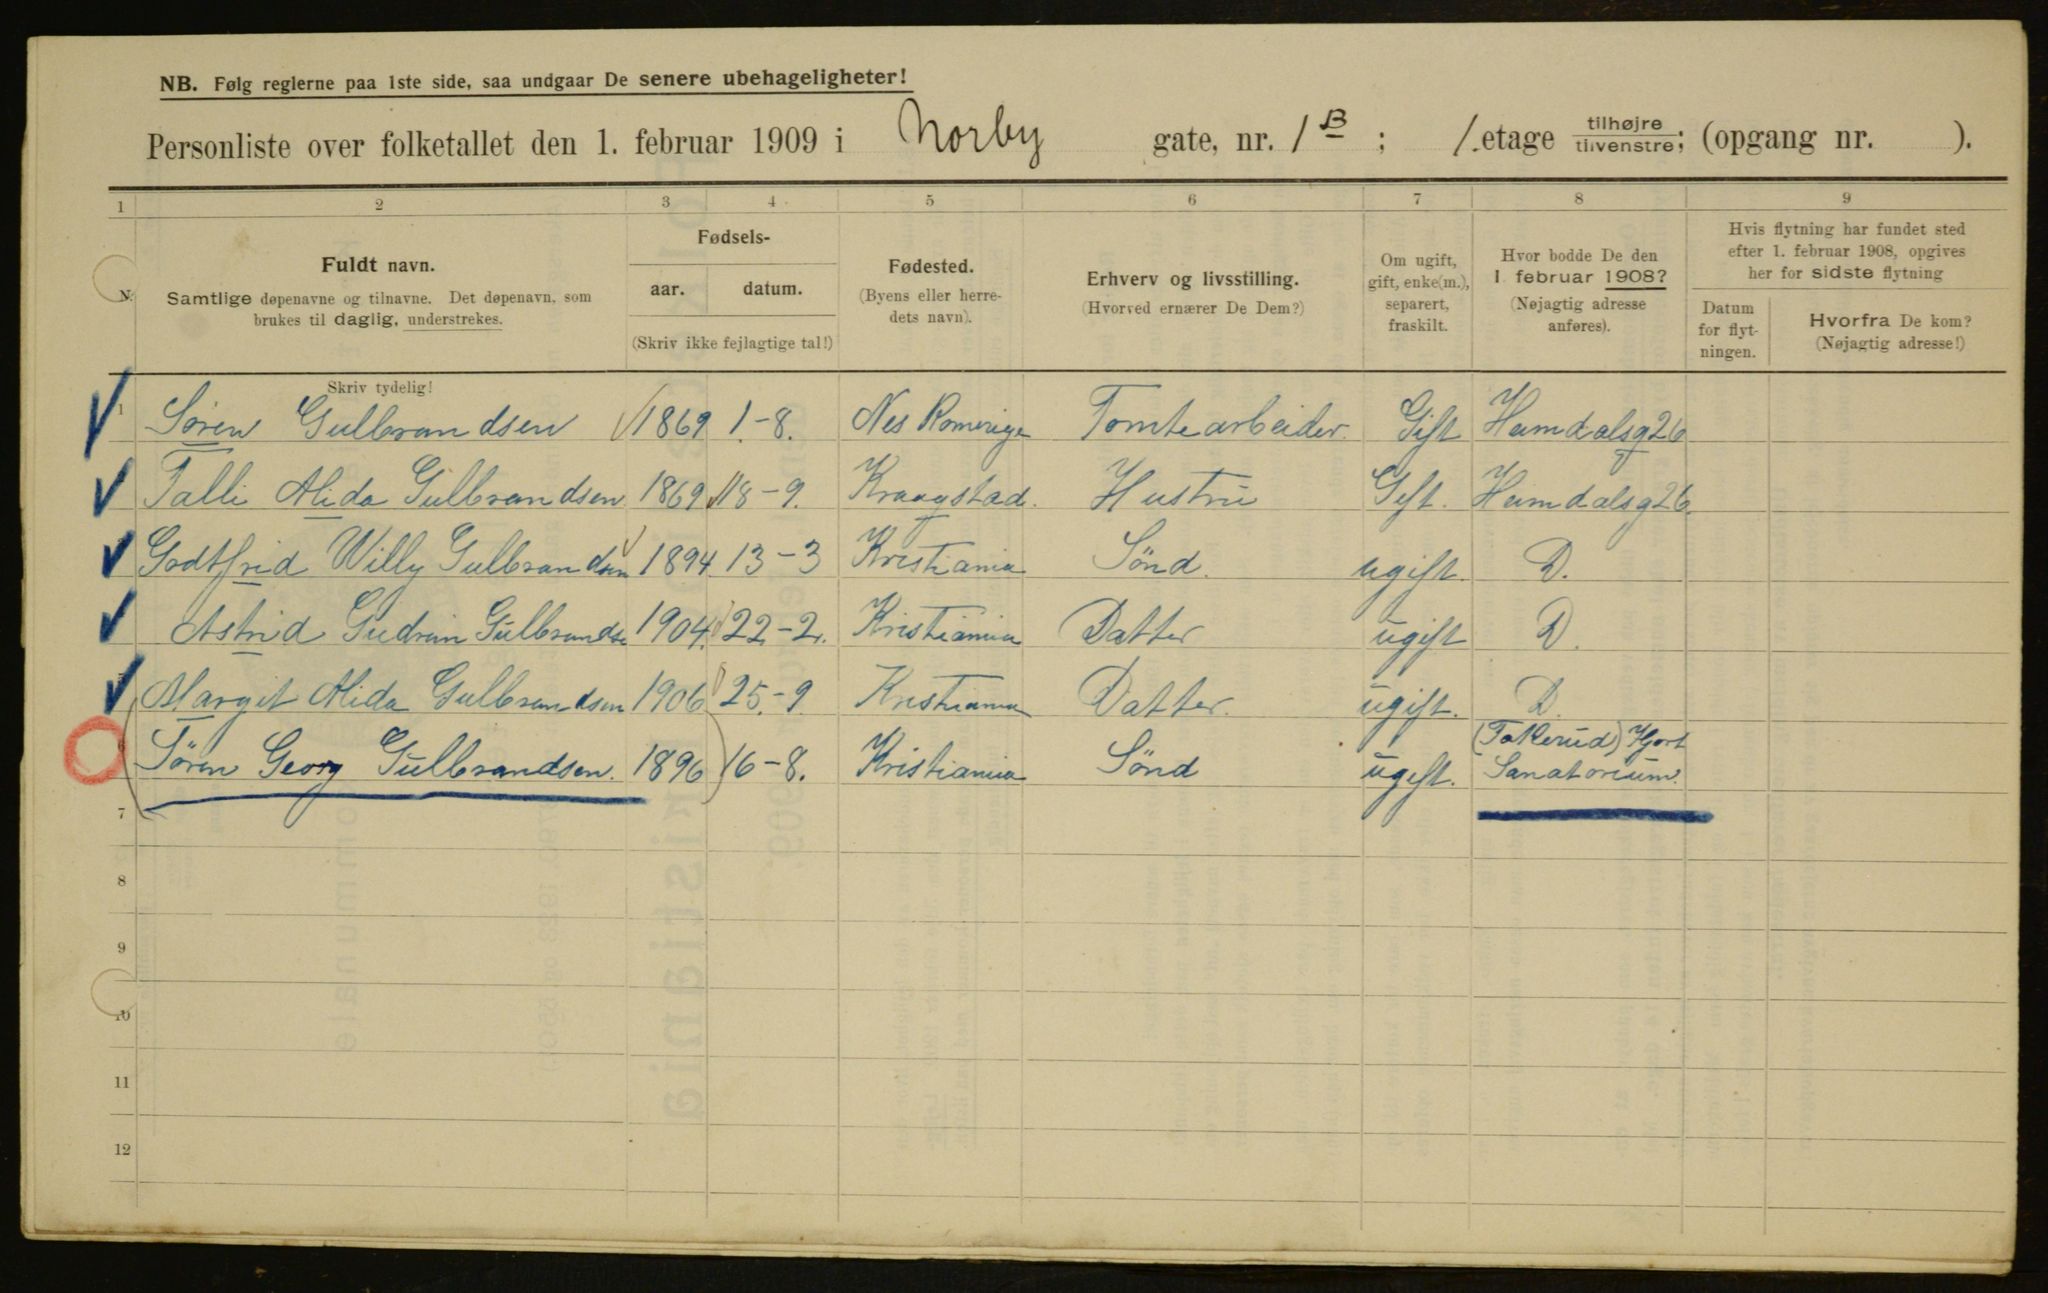 NB. Følg reglerne paa 1ste side, saa undgaar De senere ubehageligheter!
Personliste over folketallet den 1. februar 1909 i Norby gate, nr. 1 B ; 1. etage tilhøjre tilvenstre; (opgang nr. ).
1 2 3 4 5 6 7 8 9
N.
Fuldt navn.
Samtlige døpenavne og tilnavne. Det døpenavn, som
brukes til daglig, understrekes.
Fødsels-
aar. datum.
(Skriv ikke fejlagtige tal!)
Fødested.
(Byens eller herre-
dets navn).
Erhverv og livsstilling.
(Hvorved ernærer De Dem?)
Om ugift,
gift, enke(m.),
separert,
fraskilt.
Hvor bodde De den
1 februar 1908?
(Nøjagtig adresse
anføres).
Hvis flytning har fundet sted
efter 1. februar 1908, opgives
her for sidste flytning
Datum
for flyt-
ningen.
Hvorfra De kom?
(Nøjagtig adresse!)
Skriv tydelig!
1 Sören Gulbrandsen 1869 1.-8. Nes Romerige Tomtearbeider. Gift Heimdalsg 26
Talli Alida Gulbrandsen 1869 18-9. Kraagstad. Hustru Gift. Heimdalsg 26.
Godtfrid Willy Gulbrandsen 1894. 13-3 Kristiania Sönd. ugift. D.
Astrid Gudrun Gulbrandse 1904. 22-2. Kristiania Datter ugift D.
Margit Alida Gulbrandsen 1906 25.-9 Kristiania Datter. ugift. D.
(Takerud) Hjort
6 Sören Georg Gulbrandsen. 1896 16-8. Kristiania Sönd ugift. Sanatorium.
7
8
9
10
11
12